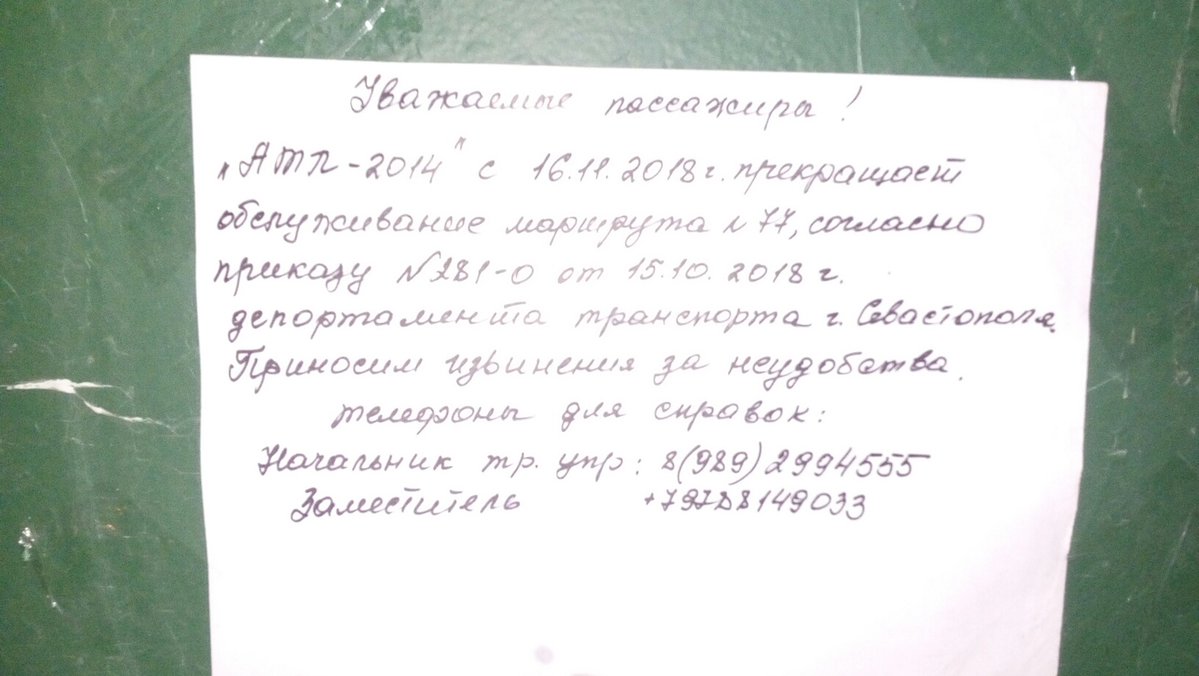 Уважаемые пассажиры!
„АТП-2014" с 16.11.2018г. прекращает
обслуживание маршрута № 77, согласно
приказу №281-о от 15.10.2018 г.
депортамента транспорта г. Севастополя.
Приносим извинения за неудобства.
телефоны для справок:
Начальник тр. упр: 8(989)2994555
Заместитель +79788149033